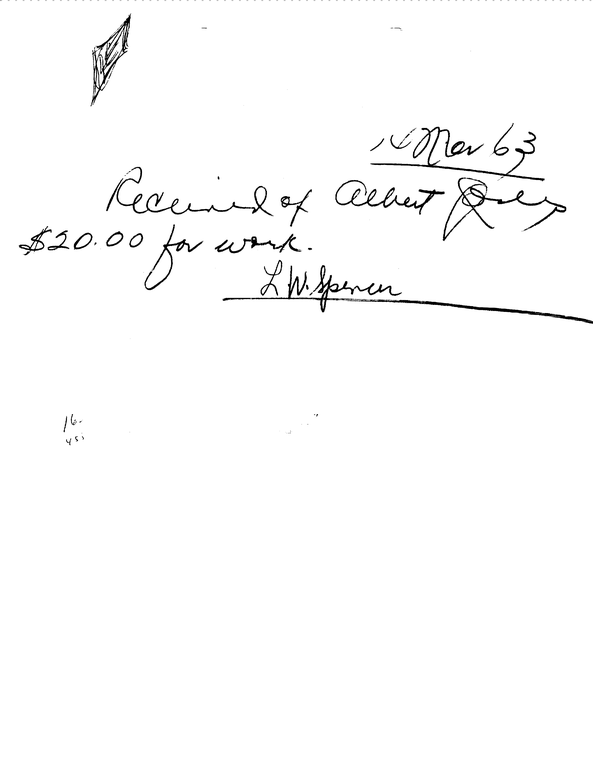 14 Mar 63
Received of Albert
$20.00 for work.
L W. Spencer
16.